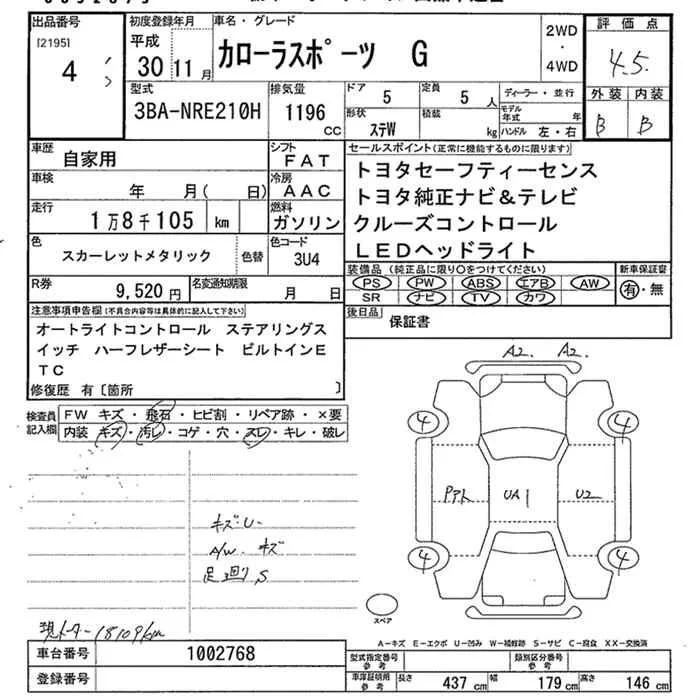 出品番号
[2195]
4
初度登録年月
平成
30 11月
車名・グレード
カローラスポーツ G
2WD
・
4WD
評価点
4.5
外装 内装
B B
型式
3BA-NRE210H
排気量
1196
cc
ドア
5
定員
5人
形状
ステW
積載
kg
ディーラー・並行
モデル年式 年
ハンドル 左・右
車歴
自家用
シフト
FAT
車検
年 月( 日)
冷房
AAC
走行
1万8千105 km
燃料
ガソリン
色
スカーレットメタリック
色替
色コード
3U4
R券
9,520円
名変通知期限
月 日
セールスポイント(正常に機能するものに限ります)
トヨタセーフティーセンス
トヨタ純正ナビ&テレビ
クルーズコントロール
LEDヘッドライト
装備品(純正品に限り○をつけてください)
PS PW ABS エアB AW
SR ナビ TV カワ
新車保証書
有・無
後日品
保証書
注意事項申告欄(不具合内容等は具体的に記入して下さい)
オートライトコントロール ステアリングス
イッチ ハーフレザーシート ビルトインE
TC
修復歴 有〔箇所 〕
検査員
記入欄
FW キズ・飛石・ヒビ割・リペア跡・×要
内装 キズ・汚レ・コゲ・穴・スレ・キレ・破レ
キズ・U-
A/W キズ
足廻りS
A2. A2.
4 4
UA1 U2
4 4
スペア
18109km
A-キズ E-エクボ U-凹み W-補修跡 S-サビ C-腐食 XX-交換済
車台番号
1002768
登録番号
型式指定番号
参考
類別区分番号
参考
車庫証明用
参考
長さ 437 cm 幅 179 cm 高さ 146 cm